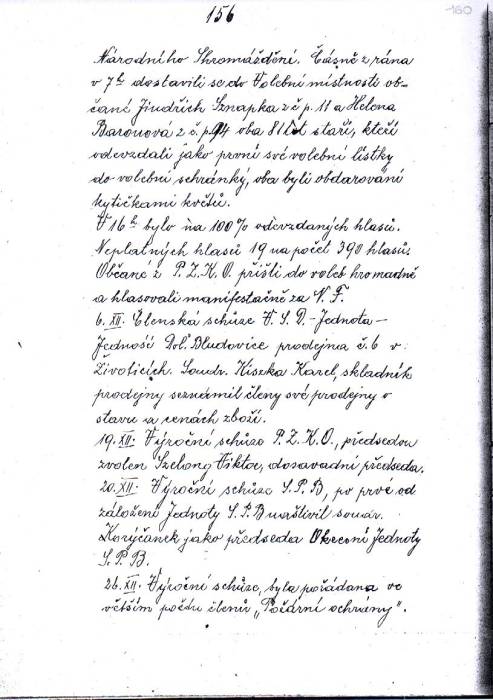 156
160
Národního Shromáždění. Časně z rána
v 7h dostavili se do Volební místnosti ob-
čané Jindřich Sznapka z č p. 11 a Helena
Baronová z č. p. 94 oba 81 let staří, kteří
odevzdali jako první své volební lístky
do volební schránky, oba byli obdarováni
kytičkami květů.
V 16h bylo na 100% odevzdaných hlasů.
Neplatných hlasů 19 na počet 390 hlasů.
Občané z P.Z.K.O. přišli do voleb hromadně
a hlasovali manifestačně za N.F.
6. XII. Členská schůze V.S.D.-Jednota-
Jedność Dol. Bludovice prodejna č. 6 v
Životicích. Soudr. Kiszka Karel, skladník
prodejny seznámil členy své prodejny o
stavu a cenách zboží.
19. XII. Výroční schůze P.Z.K.O., předsedou
zvolen Szelong Viktor, dosavadní předseda.
20. XII. Výroční schůze S.P.B, po prvé od
založení Jednoty S.P.B navštívil soudr.
Koryčánek jako předseda Okresní Jednoty
S.P.B.
26. XII. Výroční schůze, byla pořádana ve
větším počtu členů „Požární ochrány".